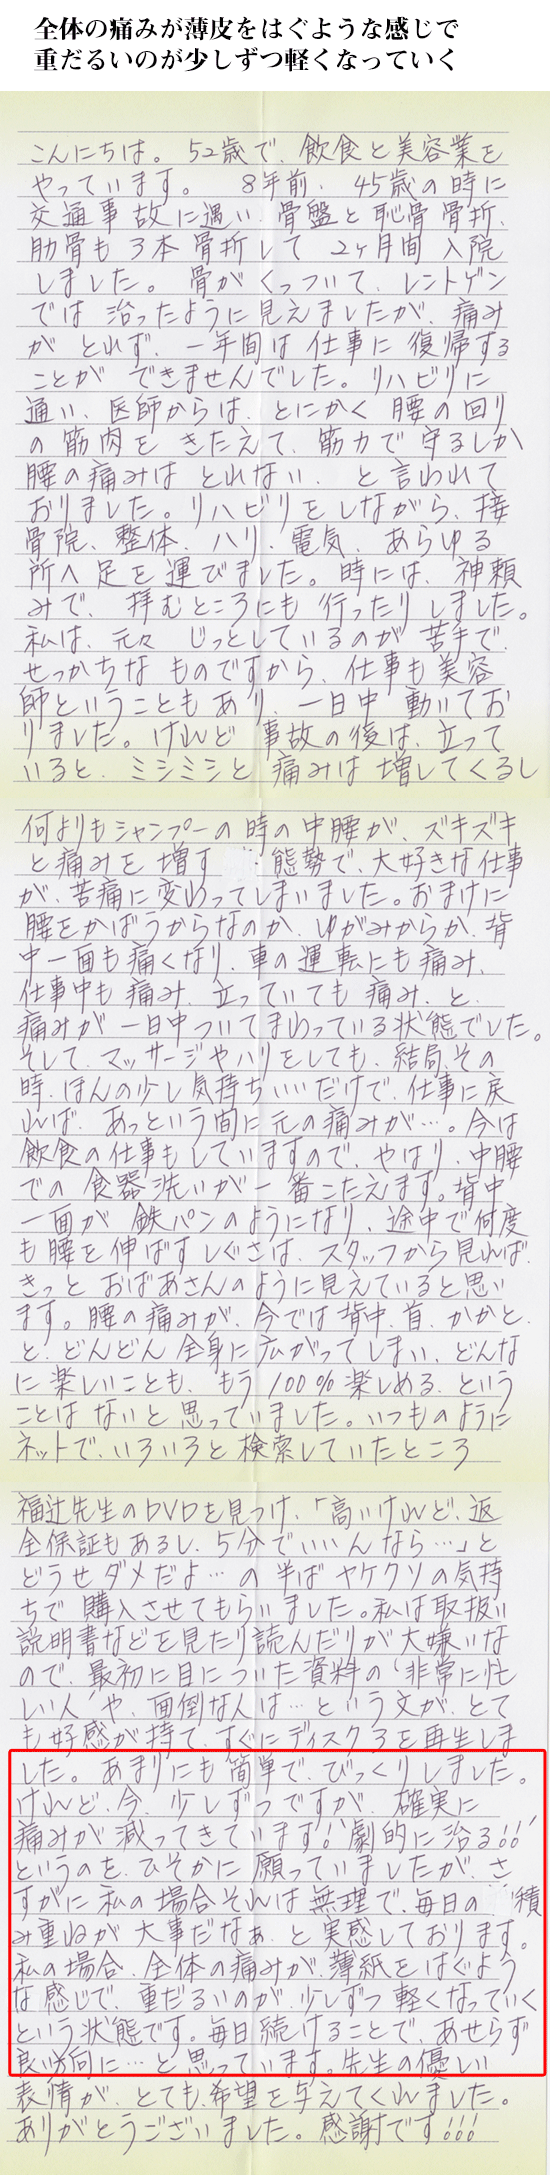 全体の痛みが薄皮をはぐような感じで
重だるいのが少しずつ軽くなっていく
こんにちは。 52歳で、飲食と美容業を
やっています。 8年前、45歳の時に
交通事故に遇い、骨盤と恥骨骨折、
肋骨も3本骨折して 2ヶ月間入院
しました。骨がくっついて、レントゲン
では治ったように見えましたが、痛み
がとれず、一年間は仕事に復帰する
ことができませんでした。リハビリに
通い、医師からは、とにかく腰の回り
の筋肉をきたえて、筋力で守るしか
腰の痛みはとれない、と言われて
おりました。リハビリをしながら、接
骨院、整体、ハリ、電気、あらゆる
所へ足を運びました。時には、神頼
みで、拝むところにも行ったりしました。
私は、元々 じっとしているのが苦手で、
せっかちなものですから、仕事も美容
師ということもあり、一日中動いてお
りました。けれど事故の後は、立って
いると、ミシミシと痛みは増してくるし
何よりもシャンプーの時の中腰が、ズキズキ
と痛みを増す 態勢で、大好きな仕事
が、苦痛に変わってしまいました。おまけに
腰をかばうからなのか、ゆがみからか、背
中一面も痛くなり、車の運転にも痛み、
仕事中も痛み、立っていても痛み、と、
痛みが一日中ついてまわっている状態でした。
そして、マッサージやハリをしても、結局、その
時、ほんの少し気持ちいいだけで、仕事に戻
れば、あっという間に元の痛みが…。今は
飲食の仕事もしていますので、やはり、中腰
での食器洗いが一番こたえます。背中
一面が鉄パンのようになり、途中で何度
も腰を伸ばすしぐさは、スタッフから見れば、
きっとおばあさんのように見えていると思い
ます。腰の痛みが、今では背中、首、かかと、
と、どんどん全身に広がってしまい、どんな
に楽しいことも、もう100%楽しめる、という
ことはないと思っていました。いつものように
ネットで、いろいろと検索していたところ
福辻先生のDVDを見つけ、「高いけれど、返
金保証もあるし、5分でいいんなら…」と
どうせダメだよ…の半ばヤケクソの気持
ちで購入させてもらいました。私は取扱い
説明書などを見たり読んだりが大嫌いな
ので、最初に目についた資料の「非常に忙
しい人」や、面倒な人は…という文が、とて
も好感が持て、すぐにディスク3を再生しま
した。あまりにも簡単で、びっくりしました。
けれど、今、少しずつですが、確実に
痛みが減ってきています!「劇的に治る!!」
というのを、ひそかに願っていましたが、さ
すがに私の場合それは無理で、毎日の 積
み重ねが大事だなぁ、と実感しております。
私の場合、全体の痛みが、薄紙をはぐよう
な感じで、重だるいのが、少しずつ軽くなっていく
という状態です。毎日続けることで、あせらず
良い方向に…と思っています。先生の優しい
表情が、とても、希望を与えてくれました。
ありがとうございました。感謝です!!!